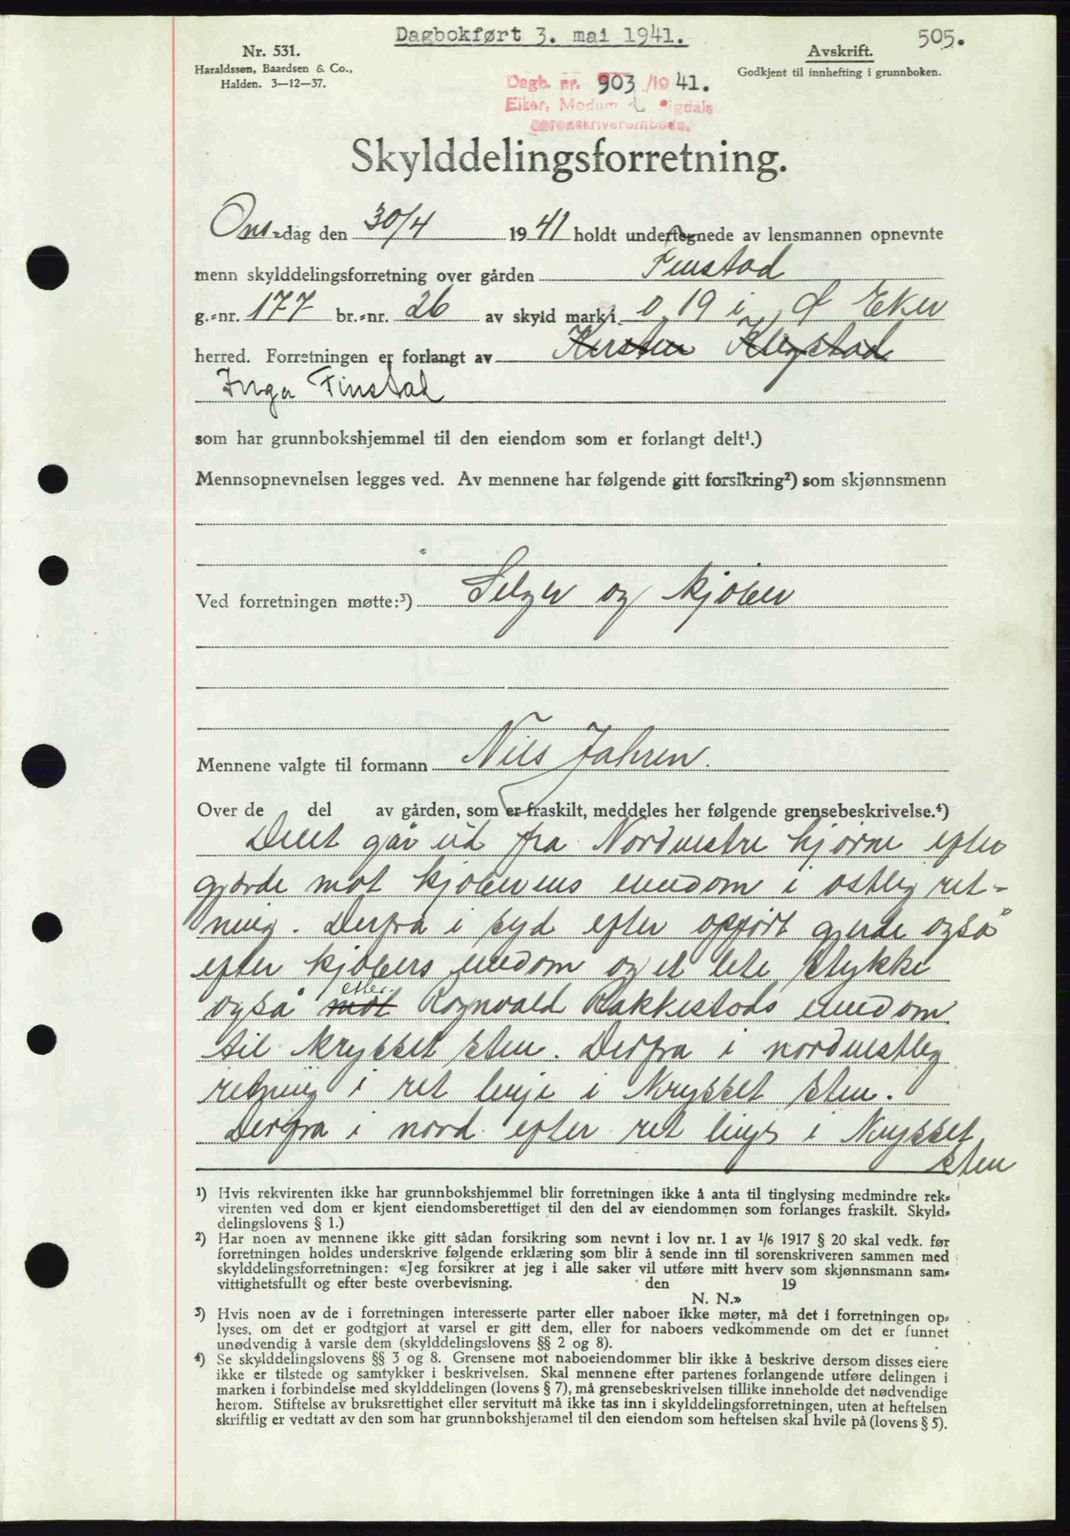 Dagbokført 3. mai 1941.
505.
Nr. 531.
Haraldssen, Baardsen & Co.,
Halden. 3—12—37.
Avskrift.
Godkjent til innhefting i grunnboken.
Dagb. nr. 903 /19 41.
Eiker, Modum Sigdals
sorenskriverembede.
Skylddelingsforretning.
Onsdag den 30/4 1941 holdt undertegnede av lensmannen opnevnte
menn skylddelingsforretning over gården Finstad
g.-nr. 177 br.-nr. 26 av skyld mark 0,19 i Ø Eker
herred. Forretningen er forlangt av Kirsten
Inga Finstad
som har grunnbokshjemmel til den eiendom som er forlangt delt¹.)
Mennsopnevnelsen legges ved. Av mennene har følgende gitt forsikring²) som skjønnsmenn
Ved forretningen møtte:³) Selger og kjøber
Mennene valgte til formann Nils Jahren.
Over de del av gården, som er fraskilt, meddeles her følgende grensebeskrivelse.⁴)
Delet går ud fra Nordvestre hjørne efter
gjærde mot kjøberens eiendom i østlig ret-
ning. Derfra i syd efter oppført gjerde også
efter kjøbers eiendom og et lite stykke
også mot efter Rognvald Rakkestads eiendom
til krysset sten. Derfra i nordvestlig
retning i ret linje i Krysset sten.
Derfra i nord efter ret linje i Krysset
sten
¹) Hvis rekvirenten ikke har grunnbokshjemmel blir forretningen ikke å anta til tinglysing medmindre rek-
virenten ved dom er kjent eiendomsberettiget til den del av eiendommen som forlanges fraskilt. Skyld-
delingslovens § 1.)
²) Har noen av mennene ikke gitt sådan forsikring som nevnt i lov nr. 1 av 1/6 1917 § 20 skal vedk. før
forretningen holdes underskrive følgende erklæring som blir å sende inn til sorenskriveren sammen med
skylddelingsforretningen: «Jeg forsikrer at jeg i alle saker vil utføre mitt hverv som skjønnsmann sam-
vittighetsfullt og efter beste overbevisning. den 19
N. N.»
³) Hvis noen av de i forretningen interesserte parter eller naboer ikke møter, må det i forretningen op-
lyses, om det er godtgjort at varsel er gitt dem, eller for naboers vedkommende om det er funnet
unødvendig å varsle dem (skylddelingslovens §§ 2 og 8).
⁴) Se skylddelingslovens §§ 3 og 8. Grensene mot naboeiendommer blir ikke å beskrive dersom disses eiere
ikke er tilstede og samtykker i beskrivelsen. Skal mennene efter partenes forlangende utføre delingen i
marken i forbindelse med skylddelingen (lovens § 7), må grensebeskrivelsen tillike inneholde det nødvendige
herom. Stiftelse av bruksrettighet eller servitutt må ikke tas inn i skylddelingsforretningen, uten at heftelsen
skriftlig er vedtatt av den som har grunnbokshjemmel til den eiendom som heftelsen skal hvile på (lovens § 5).